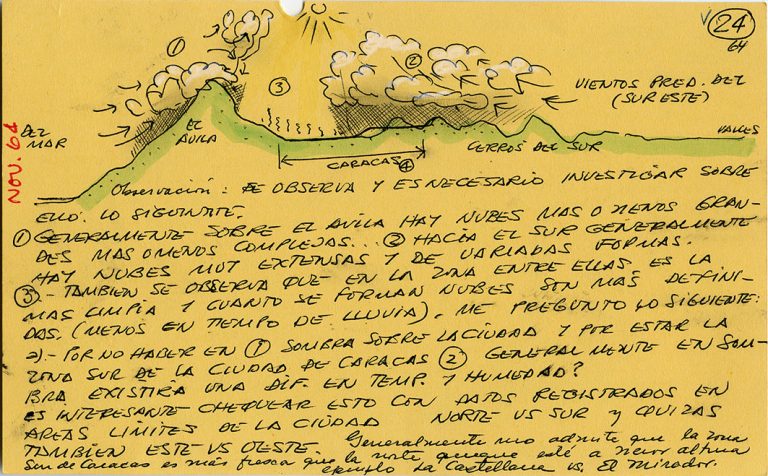 24
64
NOV. 64
①
②
③
VIENTOS PRED. DEL
(SURESTE)
DEL
MAR
EL
AVILA
CARACAS ④
CERROS DEL SUR
VALLES
Observación: SE OBSERVA Y ES NECESARIO INVESTIGAR SOBRE
ELLO. LO SIGUIENTE.
① GENERALMENTE SOBRE EL AVILA HAY NUBES MAS O MENOS GRAN-
DES MAS O MENOS COMPLEJAS... ② HACIA EL SUR GENERALMENTE
HAY NUBES MUY EXTENSAS Y DE VARIADAS FORMAS.
③.- TAMBIEN SE OBSERVA QUE EN LA ZONA ENTRE ELLAS ES LA
MAS LIMPIA Y CUANTO SE FORMAN NUBES SON MAS DEFINI-
DAS. (MENOS EN TIEMPO DE LLUVIA). ME PREGUNTO LO SIGUIENTE:
a).- POR NO HABER EN ① SOMBRA SOBRE LA CIUDAD Y POR ESTAR LA
ZONA SUR DE LA CIUDAD DE CARACAS ② GENERALMENTE EN SOM-
BRA EXISTIRA UNA DIF. EN TEMP. Y HUMEDAD?
ES INTERESANTE CHEQUEAR ESTO CON DATOS REGISTRADOS EN
AREAS LIMITES DE LA CIUDAD NORTE VS SUR Y QUIZAS
TAMBIEN ESTE VS OESTE.
Generalmente uno admite que la zona
Sur de Caracas es más fresca que la norte aunque esté a menor altura
ejemplo La Castellana vs. El Mirador